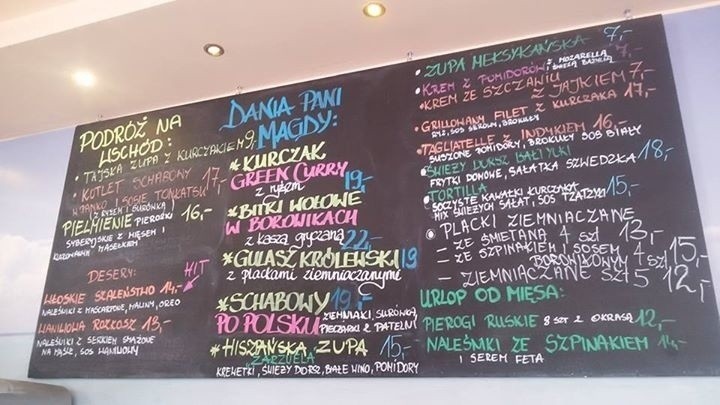 PODRÓŻ NA
WSCHÓD:
• TAJSKA ZUPA Z KURCZAKIEM 9,-
• KOTLET SCHABONY 17,-
W PANKO I SOSIE TONKATSU
(Z RYŻEM I SURÓWKĄ)
PIELMIENIE PIEROŻKI 16,-
SYBERYJSKIE Z MIĘSEM I
MASEŁKIEM
DESERY:
HIT
WŁOSKIE SZALEŃSTWO 14,-
NALEŚNIKI Z MASCARPONE, MALINY, OREO
WANILIOWA ROZKOSZ 13,-
NALEŚNIKI Z SERKIEM SMAŻONE
NA MAŚLE, SOS WANILIOWY
DANIA PANI
MAGDY:
* KURCZAK
GREEN CURRY
Z RYŻEM 19,-
* BITKI WOŁOWE
W BOROWIKACH
Z KASZĄ GRYCZANĄ 22,-
* GULASZ KRÓLEWSKI 19
Z PLACKAMI ZIEMNIACZANYMI
* SCHABOWY 19,-
PO POLSKU ZIEMNIAKI, SURÓWKA,
PIECZARKI Z PATELNI
* HISZPAŃSKA ZUPA 15,-
ZARZUELA
KREWETKI, ŚWIEŻY DORSZ, BIAŁE WINO, POMIDORY
• ZUPA MEKSYKAŃSKA 7,-
• KREM Z POMIDORÓW Z MOZARELLĄ 7,-
I ŚWIEŻĄ BAZYLIĄ
• KREM ZE SZCZAWIU
Z JAJKIEM 7,-
• GRILLOWANY FILET Z KURCZAKA 17,-
RYŻ, SOS SEROWY, BROKUŁY
• TAGLIATELLE Z INDYKIEM 16,-
SUSZONE POMIDORY, BROKUŁY SOS BIAŁY
• ŚWIEŻY DORSZ BAŁTYCKI 18,-
FRYTKI DOMOWE, SAŁATKA SZWEDZKA
• TORTILLA 15,-
SOCZYSTE KAWAŁKI KURCZAKA,
MIX ŚWIEŻYCH SAŁAT, SOS TZATZYKI
• PLACKI ZIEMNIACZANE
- ZE ŚMIETANĄ 4 SZT 13,-
- ZE SZPINAKIEM I SOSEM
BOROWIKOWYM 4 SZT 15,-
- ZIEMNIACZANE SZT 5 12,-
URLOP OD MIĘSA:
PIEROGI RUSKIE 8 SZT Z OKRASĄ 12,-
NALEŚNIKI ZE SZPINAKIEM 14,-
I SEREM FETA